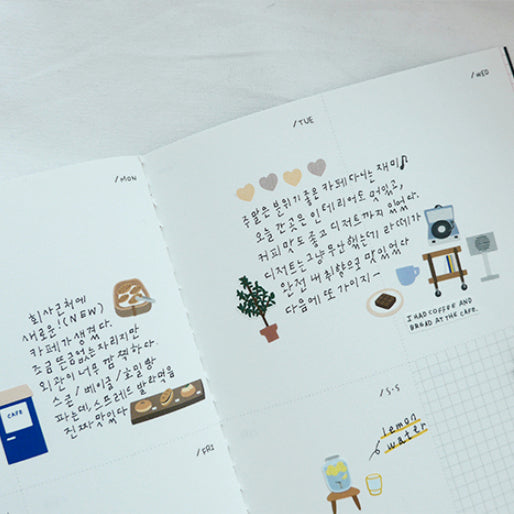 /MON
회사근처에
새로운!(NEW)
카페가 생겼다.
조금 뜬금없는 자리지만
외관이 너무 깜찍하다.
스콘/베이글/호밀빵
파는데, 스프레드 발라먹음
진짜 맛있다
CAFE
/TUE
주말은 분위기 좋은 카페 다니는 재미♪
오늘 간 곳은 인테리어도 멋있고,
커피 맛도 좋고 디저트까지 있었다.
디저트는 그냥 무난했는데 라떼가
완전 내 취향으로 맛있었다
다음에 또 가야지~
/WED
I HAD COFFEE AND
BREAD AT THE CAFE.
/FRI
/S·S
lemon
water